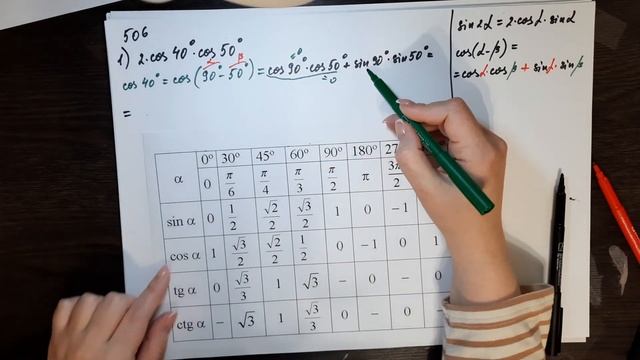 506
1) 2·cos 40°·cos 50°
α β =0
cos 40° = cos (90° - 50°) = cos 90°·cos 50° + sin 90°·sin 50° =
=0
=
sin 2α = 2·cos α·sin α
cos(α-β) =
= cos α·cos β + sin α·sin β
α 0° 30° 45° 60° 90° 180° 27
0 π/6 π/4 π/3 π/2 π 3π/2
sin α 0 1/2 √2/2 √3/2 1 0 −1
cos α 1 √3/2 √2/2 1/2 0 −1 0 1
tg α 0 √3/3 1 √3 − 0 − 0
ctg α − √3 1 √3/3 0 − 0